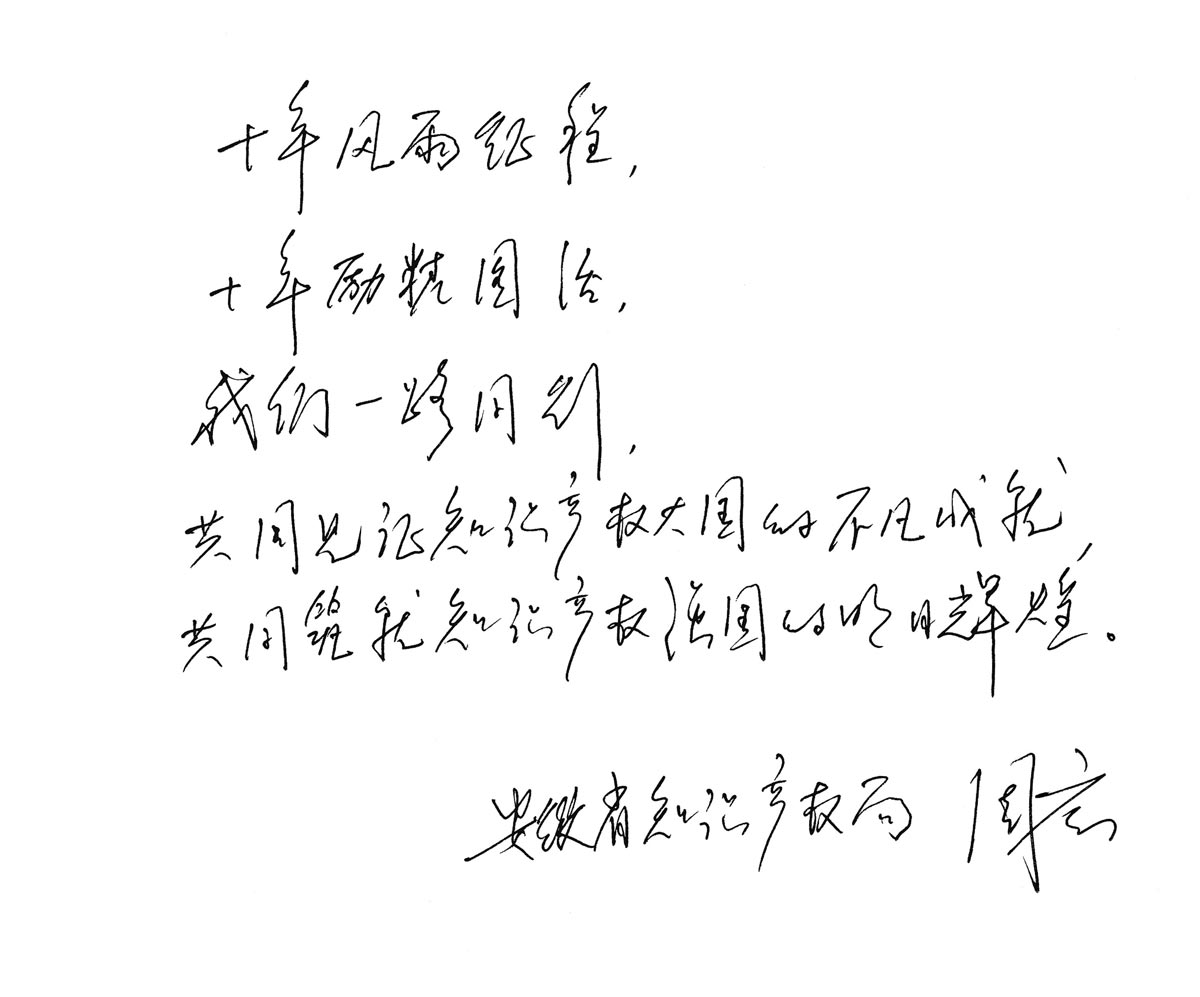 十年风雨征程,
十年励精图治,
我们一路同创,
共同见证知识产权大国的不凡成就,
共同铸就知识产权强国的明日辉煌。
安徽省知识产权局 周